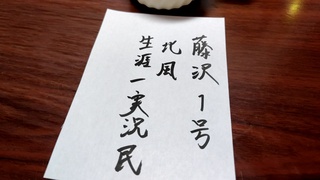 藤沢1号
北風
生涯一実況民